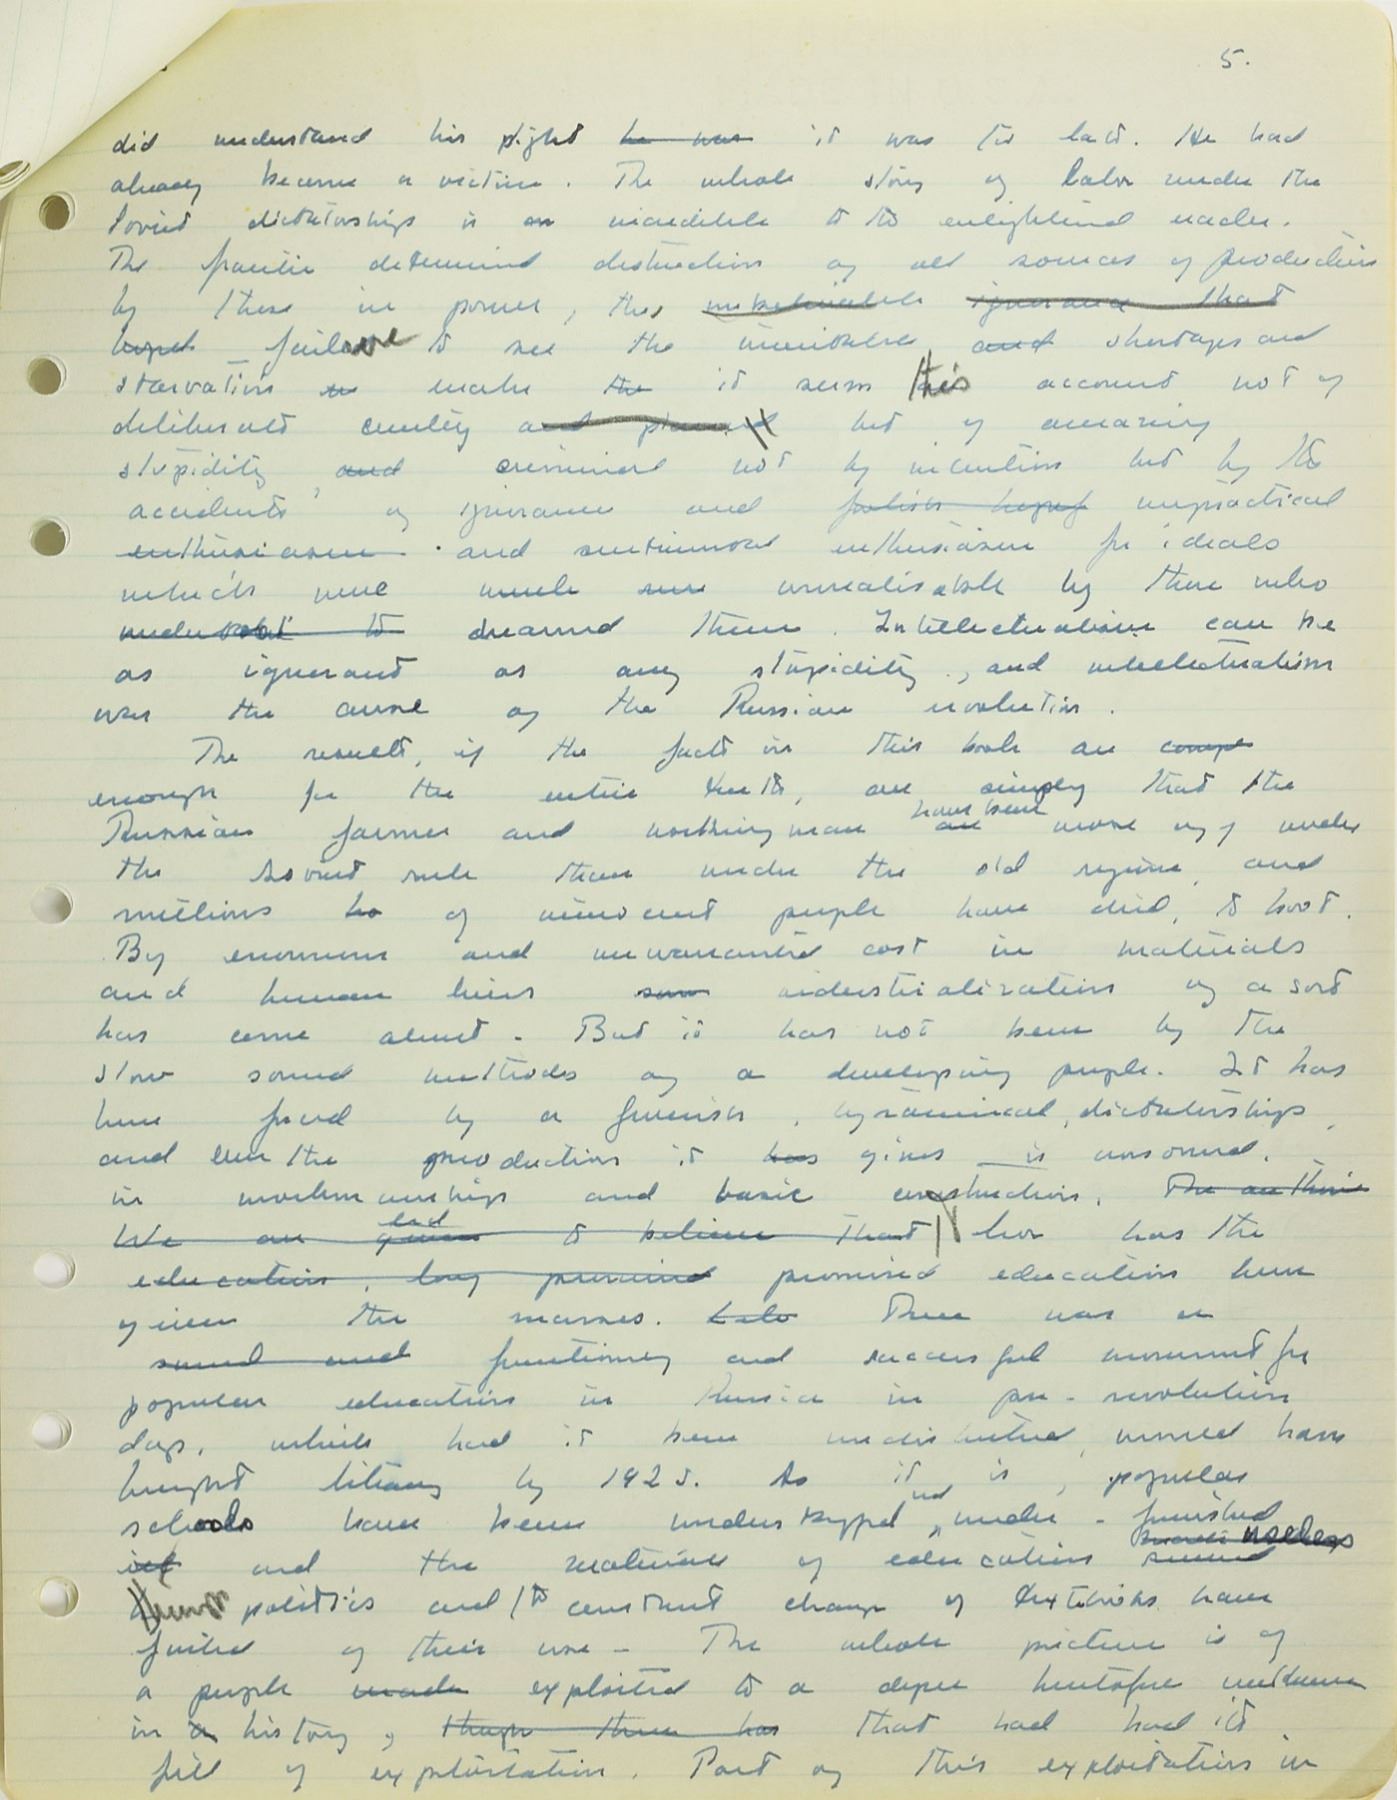 5.
did understand his plight he was it was too late. He had
already become a victim. The whole story of labor under the
Soviet dictatorship is an incredible to the enlightened reader.
The frantic determined destruction of all sources of production
by those in power, this unbelievable ignorance that
hoped failure to see the inevitable and shortages and
starvation make the it seem this account not of
deliberate cruelty and planned but of amazing
stupidity, and criminal not by intention but by the
accidents of ignorance and foolish hopes unpractical
enthusiasm. and sentimental enthusiasm for ideals
which were much unrealisable by those who
understood to dreamed them. Intellectualism can be
as ignorant as any stupidity, and intellectualism
was the curse of the Russian revolution.
The result, if the facts in this book are
enough for the entire truth, are simply that the
Russian farmer and workingman have been are worse off under
the Soviet rule than under the old regime, and
millions of innocent people have died, to boot.
By enormous and unwarranted cost in materials
and human lives industrialization of a sort
has come about. But it has not been by the
slow sound methods of a developing people. It has
been forced by a feverish, tyrannical, dictatorship,
and even the production it has gives is unsound,
in workmanship and basic construction. The authors
We are given led to believe that Nor has the
education, long promised promised education been
given the masses. There was a
sound and functioning and successful movement for
popular education in Russia in pre-revolution
days, which had it been undisturbed, would have
brought literacy by 1925. As it is, popular
schools have been understaffed and under-furnished
and the materials of education useless
politics and the constant change of textbooks have
failed of their use. The whole picture is of
a people made exploited to a degree heretofore unknown
in history, though there has that had had its
fill of exploitation. Part of this exploitation in